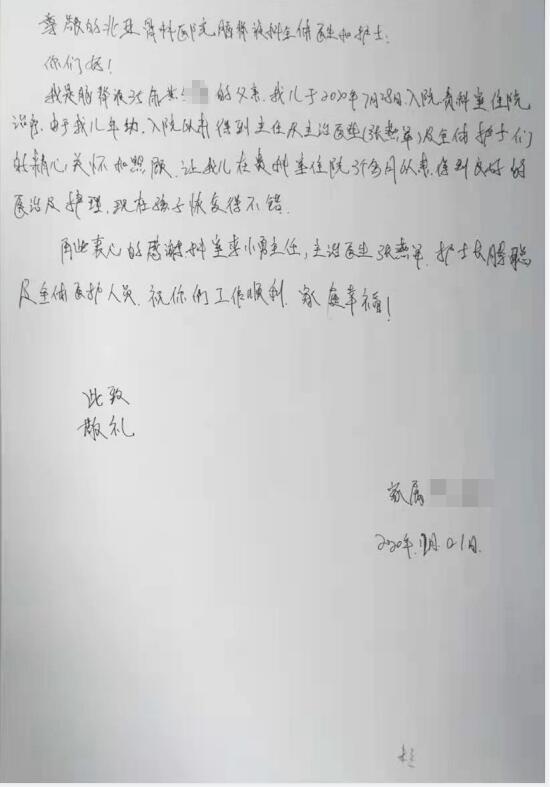 尊敬的北亚骨科医院脑脊液科全体医生和护士:
你们好!
我是脑脊液35床患 的父亲,我儿于2020年7月28日入院贵科室住院
治疗,由于我儿年幼,入院以来得到主任及主治医生(张燕军)及全体护士们
的精心关怀和照顾,让我儿在贵科室住院3个多月以来,得到良好的
医治及护理,现在孩子恢复得不错.
再此衷心的感谢,科室李小勇主任,主治医生张燕军.护士长滕聪
及全体医护人员.祝你们工作顺利.家庭幸福!
此致
敬礼
家属
2020年11月01日.